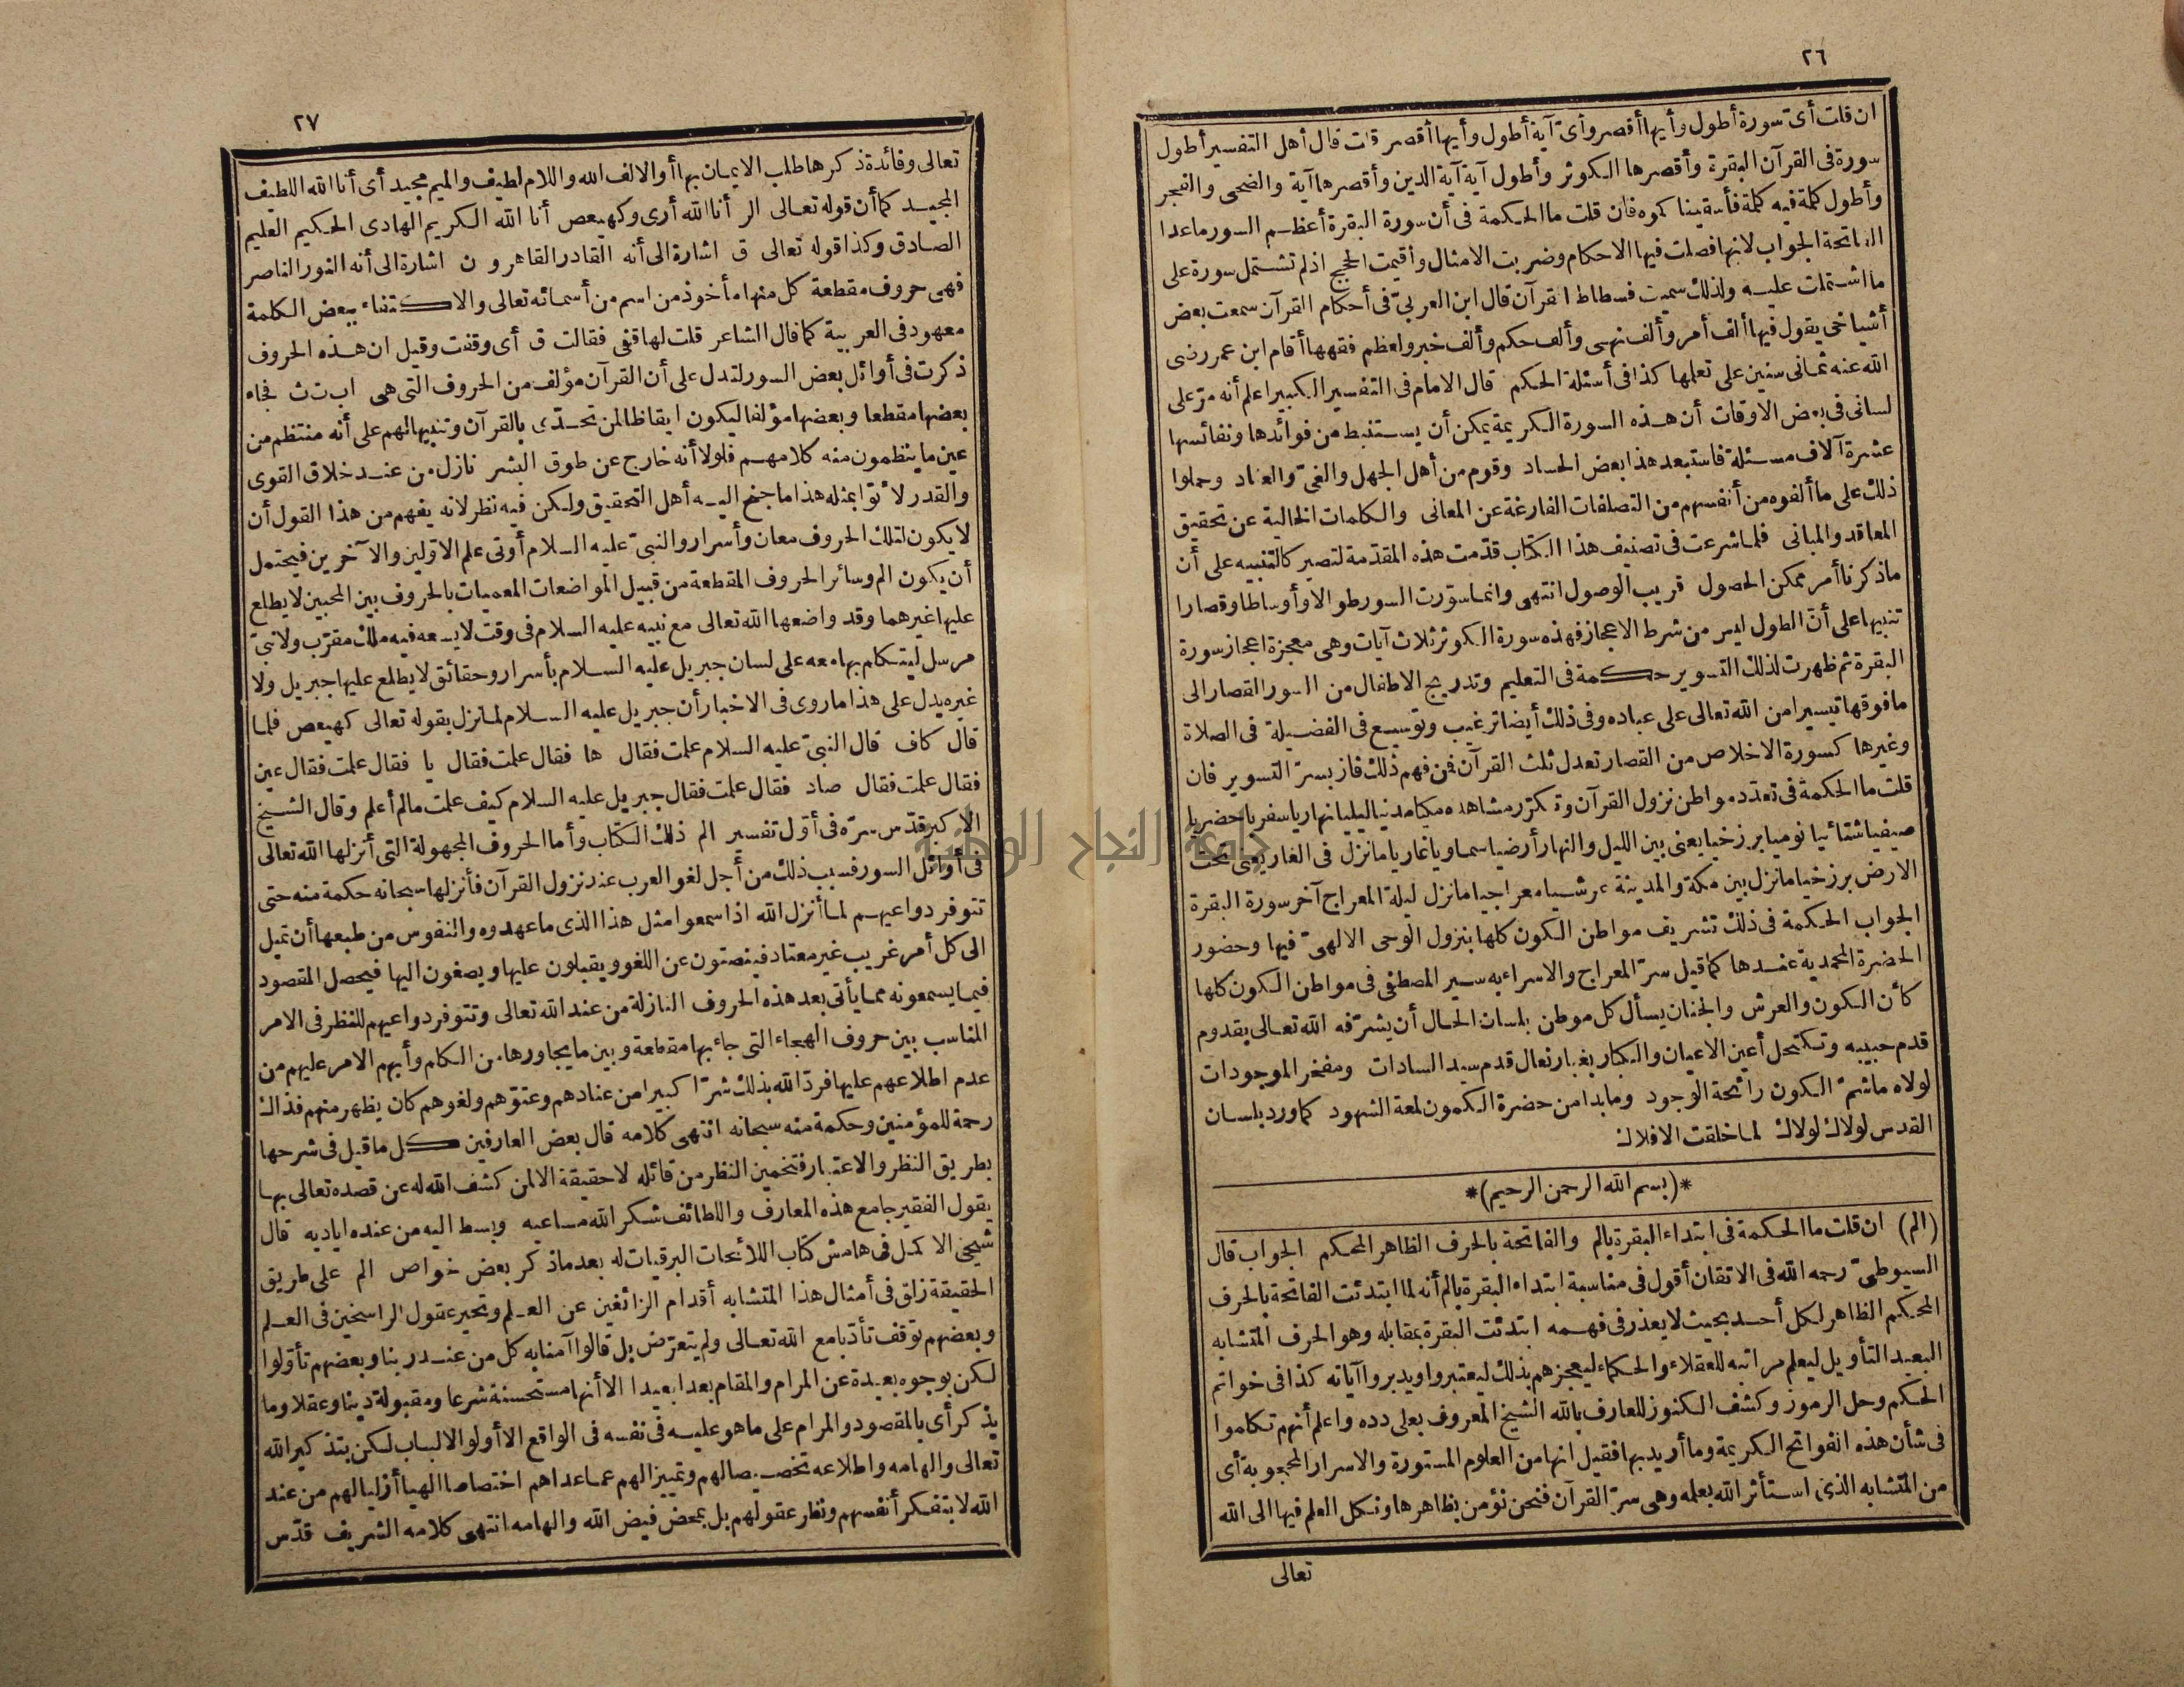 ٢٦
ان قلت أى سورة أطول وأيها أقصر وأى آية أطول وأيها أقصر قلت قال أهل التفسير أطول
سورة فى القرآن البقرة وأقصرها الكوثر وأطول آية آية الدين وأقصرها آية والضحى والفجر
وأطول كلمة فيه كلمة فأسقيناكموه فان قلت ما الحكمة فى أن سورة البقرة أعظم السور ماعدا
الفاتحة الجواب لانها فصلت فيها الاحكام وضربت الامثال وأقيمت الحجج اذ لم تشتمل سورة على
ما اشتملت عليه ولذلك سميت فسطاط القرآن قال ابن العربىّ فى أحكام القرآن سمعت بعض
أشياخى يقول فيها ألف أمر وألف نهى وألف حكم وألف خبر ولعظم فقهها أقام ابن عمر رضى
الله عنه ثمانى سنين على تعلمها كذا فى أسئلة الحكم قال الامام فى التفسير الكبير اعلم أنه مرّ على
لسانى فى بعض الاوقات أن هذه السورة الكريمة يمكن أن يستنبط من فوائدها ونفائسها
عشرة آلاف مسئلة فاستبعد هذا بعض الحساد وقوم من أهل الجهل والغىّ والعناد وحملوا
ذلك على ما ألفوه من أنفسهم من التصلفات الفارغة عن المعانى والكلمات الخالية عن تحقيق
المعاقد والمبانى فلما شرعت فى تصنيف هذا الكتاب قدّمت هذه المقدّمة لتصير كالتنبيه على أن
ماذكرنا أمر ممكن الحصول قريب الوصول انتهى وانما سوّرت السور طوالا وأوساطا وقصارا
تنبيها على أنّ الطول ليس من شرط الاعجاز فهذه سورة الكوثر ثلاث آيات وهى معجزة اعجاز سورة
البقرة ثم ظهرت لذلك التسوير حكمة فى التعليم وتدريج الاطفال من السور القصار الى
ما فوقها تيسيرا من الله تعالى على عباده وفى ذلك أيضا ترغيب وتوسيع فى الفضيلة فى الصلاة
وغيرها كسورة الاخلاص من القصار تعدل ثلث القرآن فمن فهم ذلك فاز بسرّ التسوير فان
قلت ما الحكمة فى تعدّد مواطن نزول القرآن وتكرّر مشاهده مكيا مدنيا ليليا نهاريا سفريا حضريا
صيفيا شتائيا نوميا برزخيا يعنى بين الليل والنهار أرضيا سماويا غاريا ما نزل فى الغار يعنى تحت
الارض برزخيا ما نزل بين مكة والمدينة عرشيا معراجيا ما نزل ليلة المعراج آخر سورة البقرة
الجواب الحكمة فى ذلك تشريف مواطن الكون كلها بنزول الوحى الالهىّ فيها وحضور
الحضرة المحمدية عندها كما قيل سرّ المعراج والاسراء به سير المصطفى فى مواطن الكون كلها
كأن الكون والعرش والجنان يسأل كل موطن بلسان الحال أن يشرّفه الله تعالى بقدوم
قدم حبيبه وتكتحل أعين الاعيان والكبار بغبار نعال قدم سيد السادات ومفخر الموجودات
لولاه ماشمّ الكون رائحة الوجود ومابدا من حضرة الكمون لمعة الشهود كما ورد بلسان
القدس لولاك لولاك لما خلقت الافلاك
*(بسم الله الرحمن الرحيم)*
(الم) ان قلت ما الحكمة فى ابتداء البقرة بالم والفاتحة بالحرف الظاهر المحكم الجواب قال
السيوطىّ رحمه الله فى الاتقان أقول فى مناسبة ابتداء البقرة بالم أنه لما ابتدئت الفاتحة بالحرف
المحكم الظاهر لكل أحد بحيث لا يعذر فى فهمه ابتدئت البقرة بمقابله وهو الحرف المتشابه
البعيد التأويل ليعلم مراتبه للعقلاء والحكماء ليعجزهم بذلك ليعتبروا ويدبروا آياته كذا فى خواتم
الحكم وحل الرموز وكشف الكنوز للعارف بالله الشيخ المعروف بعلى دده واعلم أنهم تكلموا
فى شأن هذه الفواتح الكريمة وما أريد بها فقيل انها من العلوم المستورة والاسرار المحجوبة أى
من المتشابه الذى استأثر الله بعلمه وهى سرّ القرآن فنحن نؤمن بظاهرها ونكل العلم فيها الى الله
تعالى
٢٧
تعالى وفائدة ذكرها طلب الايمان بها أو الالف الله واللام لطيف والميم مجيد أى أنا الله اللطيف
المجيد كما أن قوله تعالى الر أنا الله أرى وكهيعص أنا الله الكريم الهادى الحكيم العليم
الصادق وكذا قوله تعالى ق اشارة الى أنه القادر القاهر و ن اشارة الى أنه النور الناصر
فهى حروف مقطعة كل منها مأخوذ من اسم من أسمائه تعالى والاكتفاء ببعض الكلمة
معهود فى العربية كما قال الشاعر قلت لها قفى فقالت ق أى وقفت وقيل ان هذه الحروف
ذكرت فى أوائل بعض السور لتدل على أن القرآن مؤلف من الحروف التى هى اب ت ث فجاء
بعضها مقطعا وبعضها مؤلفا ليكون ايقاظا لمن تحدّى بالقرآن وتنبيها لهم على أنه منتظم من
عين ما ينظمون منه كلامهم فلولا أنه خارج عن طوق البشر نازل من عند خلاق القوى
والقدر لأتوا بمثله هذا ما جنح اليه أهل التحقيق ولكن فيه نظر لانه يفهم من هذا القول أن
لا يكون لتلك الحروف معان وأسرار والنبىّ عليه السلام أوتى علم الاوّلين والآخرين فيحتمل
أن يكون الم وسائر الحروف المقطعة من قبيل المواضعات المعميات بالحروف بين المحبين لا يطلع
عليها غيرهما وقد واضعها الله تعالى مع نبيه عليه السلام فى وقت لا يسعه فيه ملك مقرّب ولا نبىّ
مرسل ليتكلم بها معه على لسان جبريل عليه السلام بأسرار وحقائق لا يطلع عليها جبريل ولا
غيره يدل على هذا ما روى فى الاخبار أن جبريل عليه السلام لما نزل بقوله تعالى كهيعص فلما
قال كاف قال النبىّ عليه السلام علمت فقال ها فقال علمت فقال يا فقال علمت فقال عين
فقال علمت فقال صاد فقال علمت فقال جبريل عليه السلام كيف علمت ما لم أعلم وقال الشيخ
الاكبر قدّس سرّه فى أوّل تفسير الم ذلك الكتاب وأما الحروف المجهولة التى أنزلها الله تعالى
فى أوائل السور فسبب ذلك من أجل لغو العرب عند نزول القرآن فأنزلها سبحانه حكمة منه حتى
تتوفر دواعيهم لما أنزل الله اذا سمعوا مثل هذا الذى ما عهدوه والنفوس من طبعها أن تميل
الى كل أمر غريب غير معتاد فينصتون عن اللغو ويقبلون عليها ويصغون اليها فيحصل المقصود
فيما يسمعونه مما يأتى بعد هذه الحروف النازلة من عند الله تعالى وتتوفر دواعيهم للنظر فى الامر
المناسب بين حروف الهجاء التى جاء بها مقطعة وبين ما يجاورها من الكلم وأبهم الامر عليهم من
عدم اطلاعهم عليها فردّ الله بذلك شرّا كبيرا من عنادهم وعتوّهم ولغوهم كان يظهر منهم فذالك
رحمة للمؤمنين وحكمة منه سبحانه انتهى كلامه قال بعض العارفين كل ما قيل فى شرحها
بطريق النظر والاعتبار فتخمين النظر من قائله لا حقيقة الا لمن كشف الله له عن قصده تعالى بها
يقول الفقير جامع هذه المعارف واللطائف شكر الله مساعيه وبسط اليه من عنده اياديه قال
شيخى الاكمل فى هامش كتاب اللائحات البرقيات له بعد ماذكر بعض خواص الم على طريق
الحقيقة زلق فى أمثال هذا المتشابه أقدام الزائغين عن العلم وتحير عقول الراسخين فى العلم
وبعضهم توقف تأدّبا مع الله تعالى ولم يتعرّض بل قالوا آمنا به كل من عند ربنا وبعضهم تأوّلوا
لكن بوجوه بعيدة عن المرام والمقام بعدا بعيدا الا أنها مستحسنة شرعا ومقبولة دينا وعقلا وما
يذكر أى بالمقصود والمرام على ما هو عليه فى نفسه فى الواقع الا أولو الالباب لكن بتذكير الله
تعالى والهامه واطلاعه تخصيصا لهم وتمييزا لهم عما عداهم اختصاصا الهيا أزليا لهم من عند
الله لا بتفكر أنفسهم ونظر عقولهم بل بمحض فيض الله والهامه انتهى كلامه الشريف قدّس
جامعة النجاح الوطنية